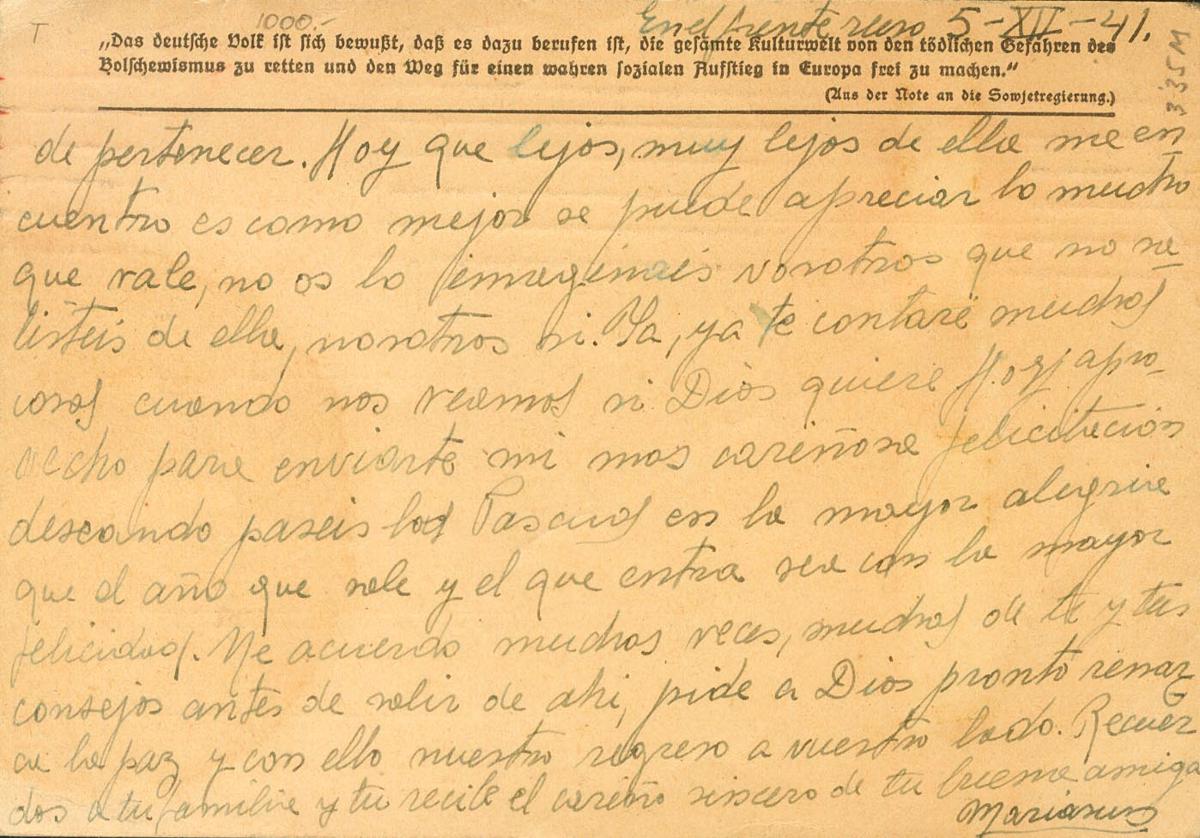 T
1000.-
En el frente ruso 5-XII-41.
„Das deutsche Volk ist sich bewußt, daß es dazu berufen ist, die gesamte Kulturwelt von den tödlichen Gefahren des
Bolschewismus zu retten und den Weg für einen wahren sozialen Aufstieg in Europa frei zu machen.“
(Aus der Note an die Sowjetregierung.)
335M
de pertenecer. Hoy que lejos, muy lejos de ella me en
cuentro es como mejor se puede apreciar lo mucho
que vale, no os lo imagináis vosotros que no sa-
listeis de ella, nosotros si. Ya, ya te contaré muchas
cosas cuando nos veamos si Dios quiere Hoy apro-
vecho para enviarte mi mas cariñosa felicitación
deseando paseis las Pascuas en la mayor alegria
que el año que sale y el que entra sea con la mayor
felicidad. Me acuerdo muchas veces, muchas de ti y tus
consejos antes de salir de ahi, pide a Dios pronto renaz
ca la paz y con ello nuestro regreso a vuestro lado. Recuer
dos a tu familia y tu recibe el cariño sincero de tu buena amiga
Marianus